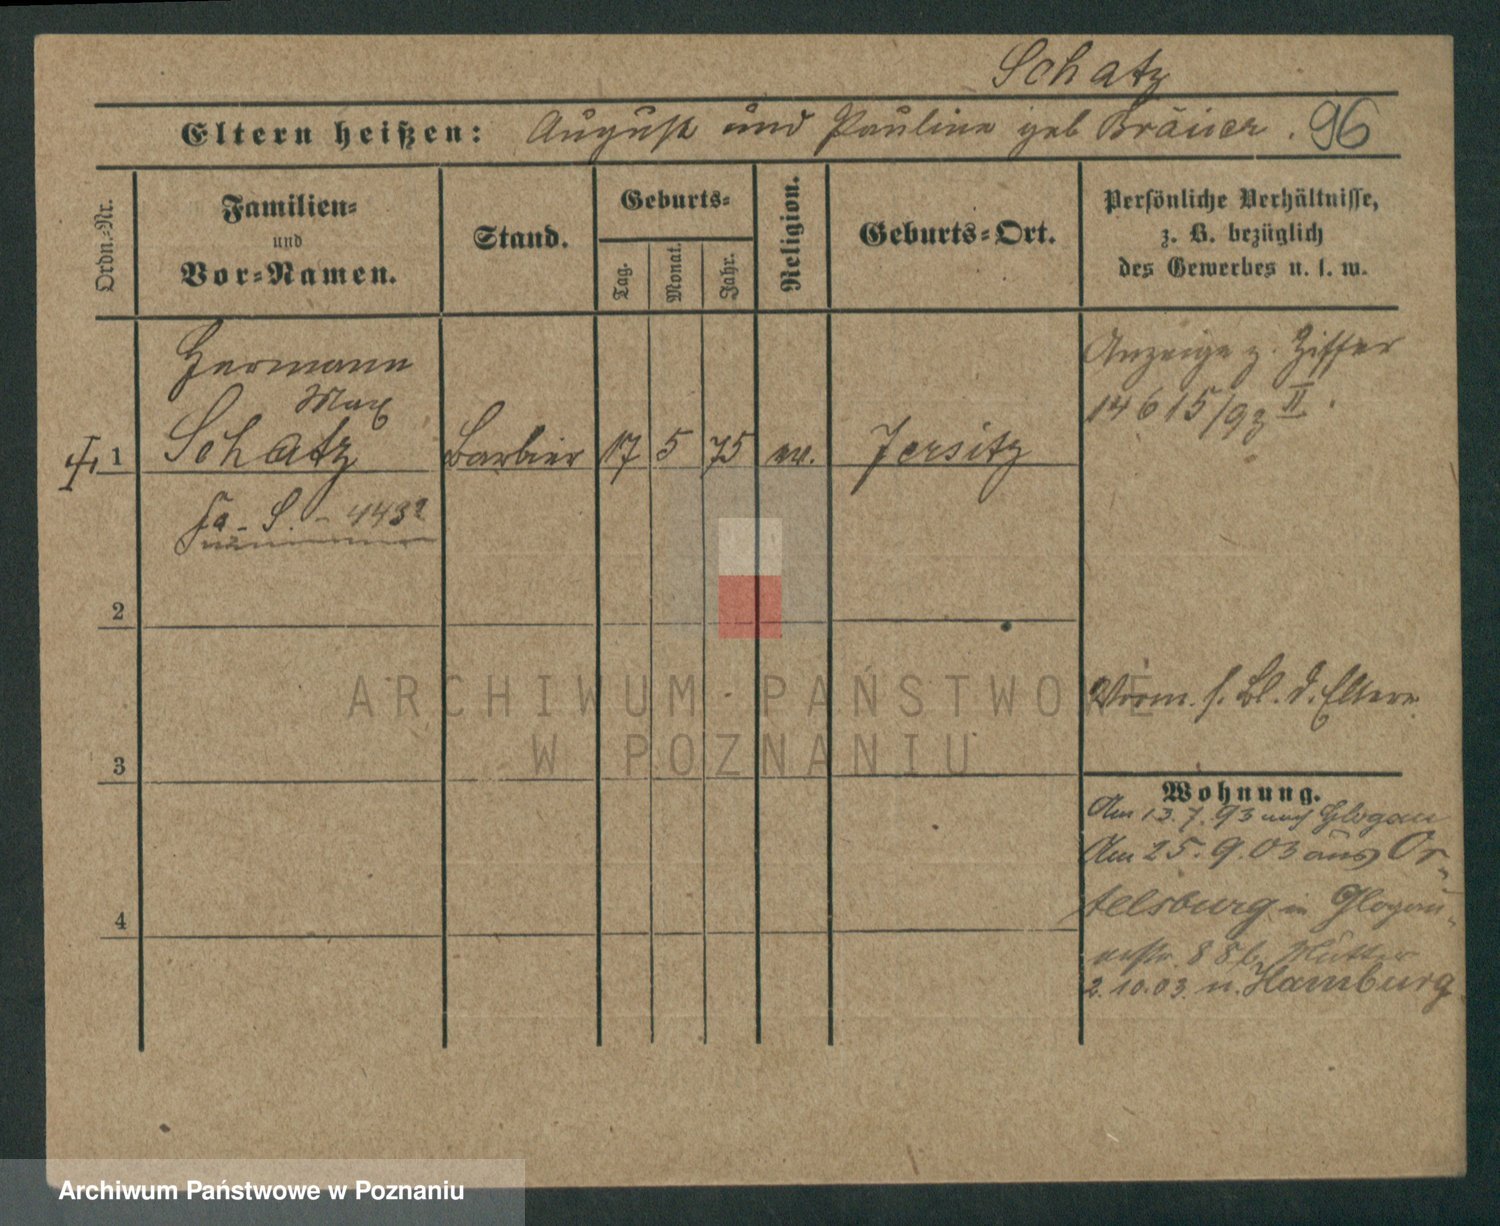 Schatz
Eltern heißen: August und Pauline geb Bräuer. 96
Ordn.-Nr.
Familien-
und
Vor-Namen.
Stand.
Geburts-
Tag.
Monat.
Jahr.
Religion.
Geburts-Ort.
Persönliche Verhältnisse,
z. B. bezüglich
des Gewerbes u. s. w.
Hermann
Max
1 Schatz Barbier 17 5 75 ev. Jersitz
Anzeige z. Ziffer
14615/93 II.
S. - 443
2
Vorm. s. Bl. d. Eltern
3
Wohnung.
Am 13.7.93 nach Glogau
Am 25.9.03 aus Or-
telsburg in Glogau-
erstr. 88 b. Mutter
2.10.03. n. Hamburg
4
ARCHIWUM PAŃSTWOWE
W POZNANIU
Archiwum Państwowe w Poznaniu